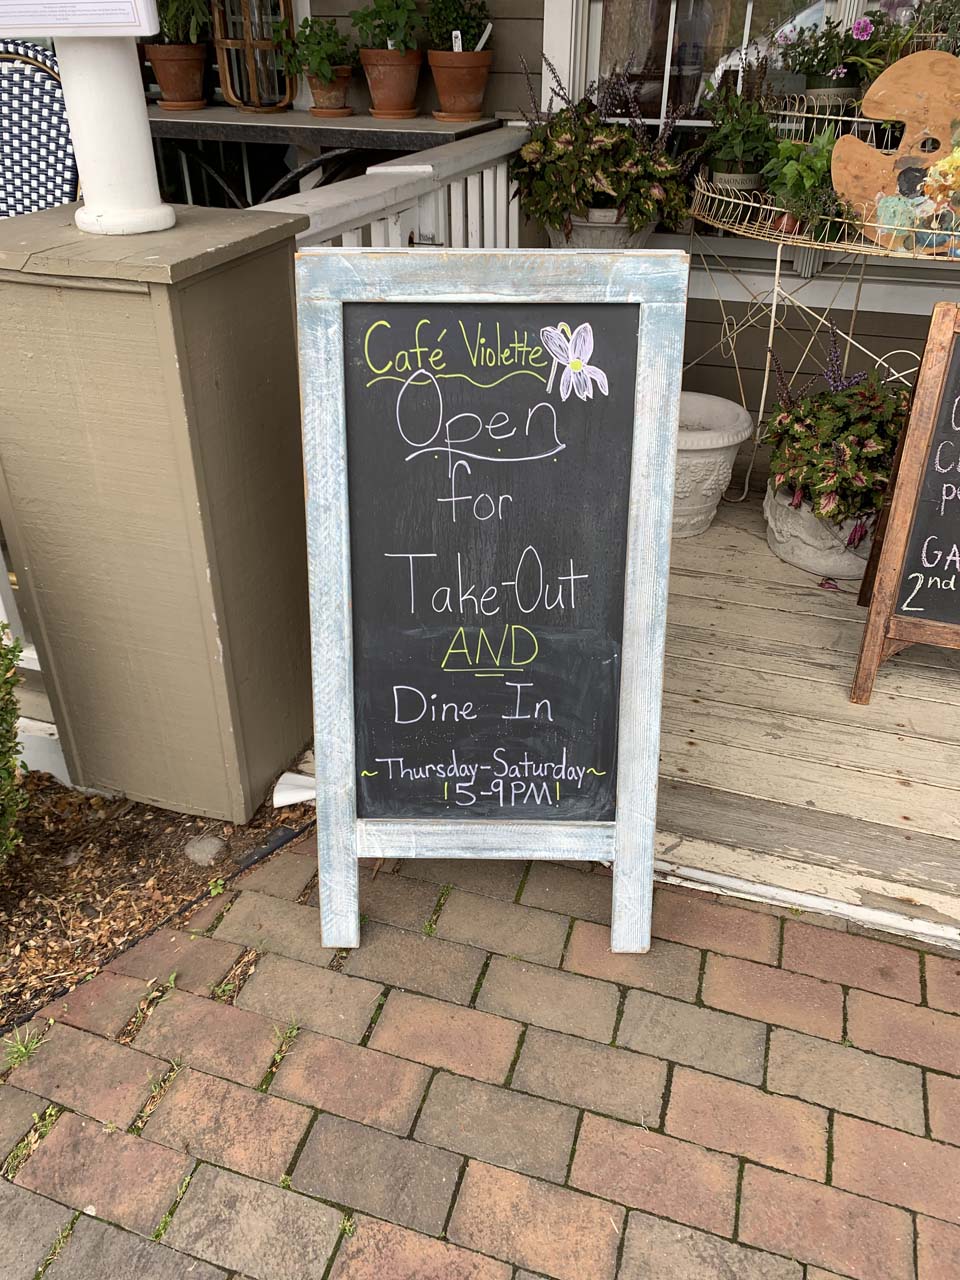 Café Violette
Open
for
Take-Out
AND
Dine In
~Thursday-Saturday~
!5-9PM!
GA
2nd